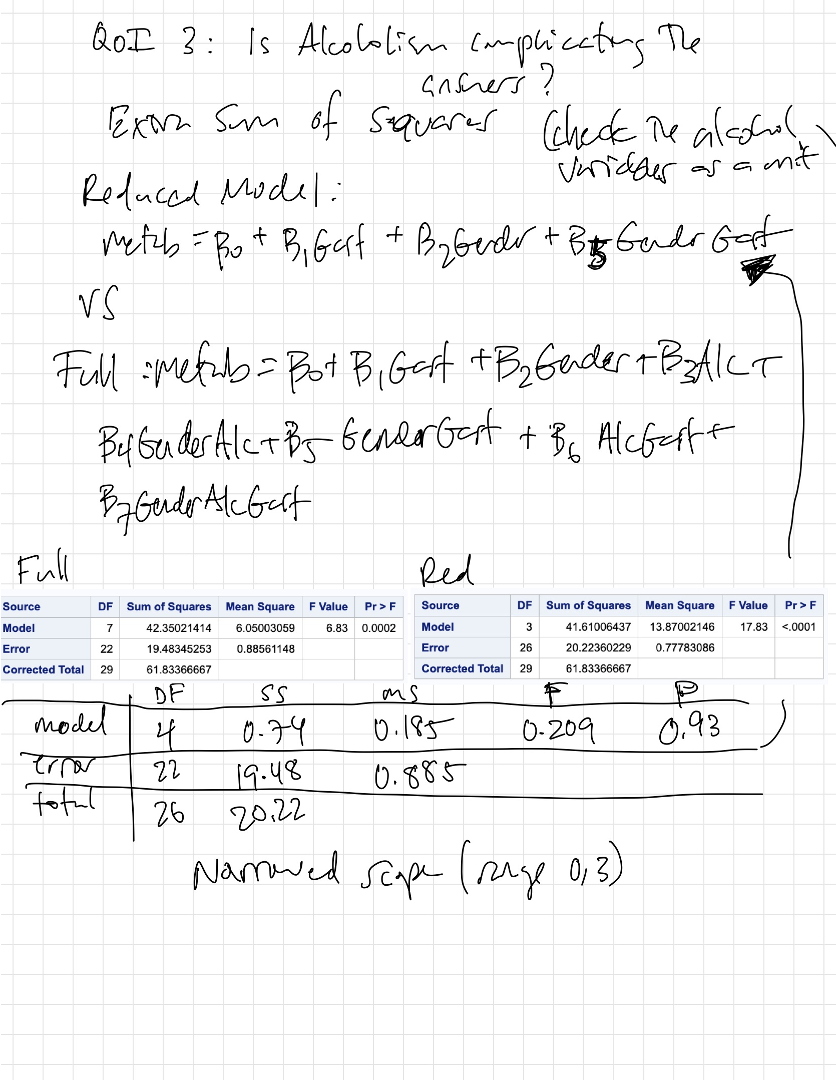 QOI 3: Is Alcoholism complicating The
answers?
Extra Sum of Squares (check The alcohol
variables as a unit
Reduced Model:
metab = B0 + B1Gast + B2Gender + B5 Gender Gast
VS
Full : metab = B0 + B1Gast + B2Gender + B3Alc +
B4GenderAlc + B5 GenderGast + B6 AlcGast +
B7GenderAlcGast
Full Red
Source DF Sum of Squares Mean Square F Value Pr > F
Model 7 42.35021414 6.05003059 6.83 0.0002
Error 22 19.48345253 0.88561148
Corrected Total 29 61.83366667
Source DF Sum of Squares Mean Square F Value Pr > F
Model 3 41.61006437 13.87002146 17.83 <.0001
Error 26 20.22360229 0.77783086
Corrected Total 29 61.83366667
DF SS MS F P
model 4 0.74 0.185 0.209 0.93
error 22 19.48 0.885
total 26 20.22
Narrowed scope (range 0,3)